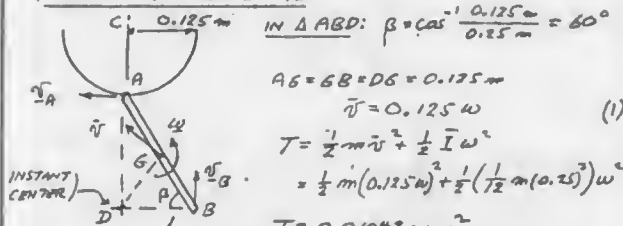 C 0.125 m
IN Δ ABD: β = cos⁻¹ 0.125 m / 0.25 m = 60°
A
AG = GB = DG = 0.125 m
v_A
v̄ = 0.125 ω (1)
v̄ ω
T = 1/2 m v̄² + 1/2 Ī ω²
G v_B
= 1/2 m (0.125 ω)² + 1/2 (1/12 m (0.25)²) ω²
INSTANT
CENTER
D β B